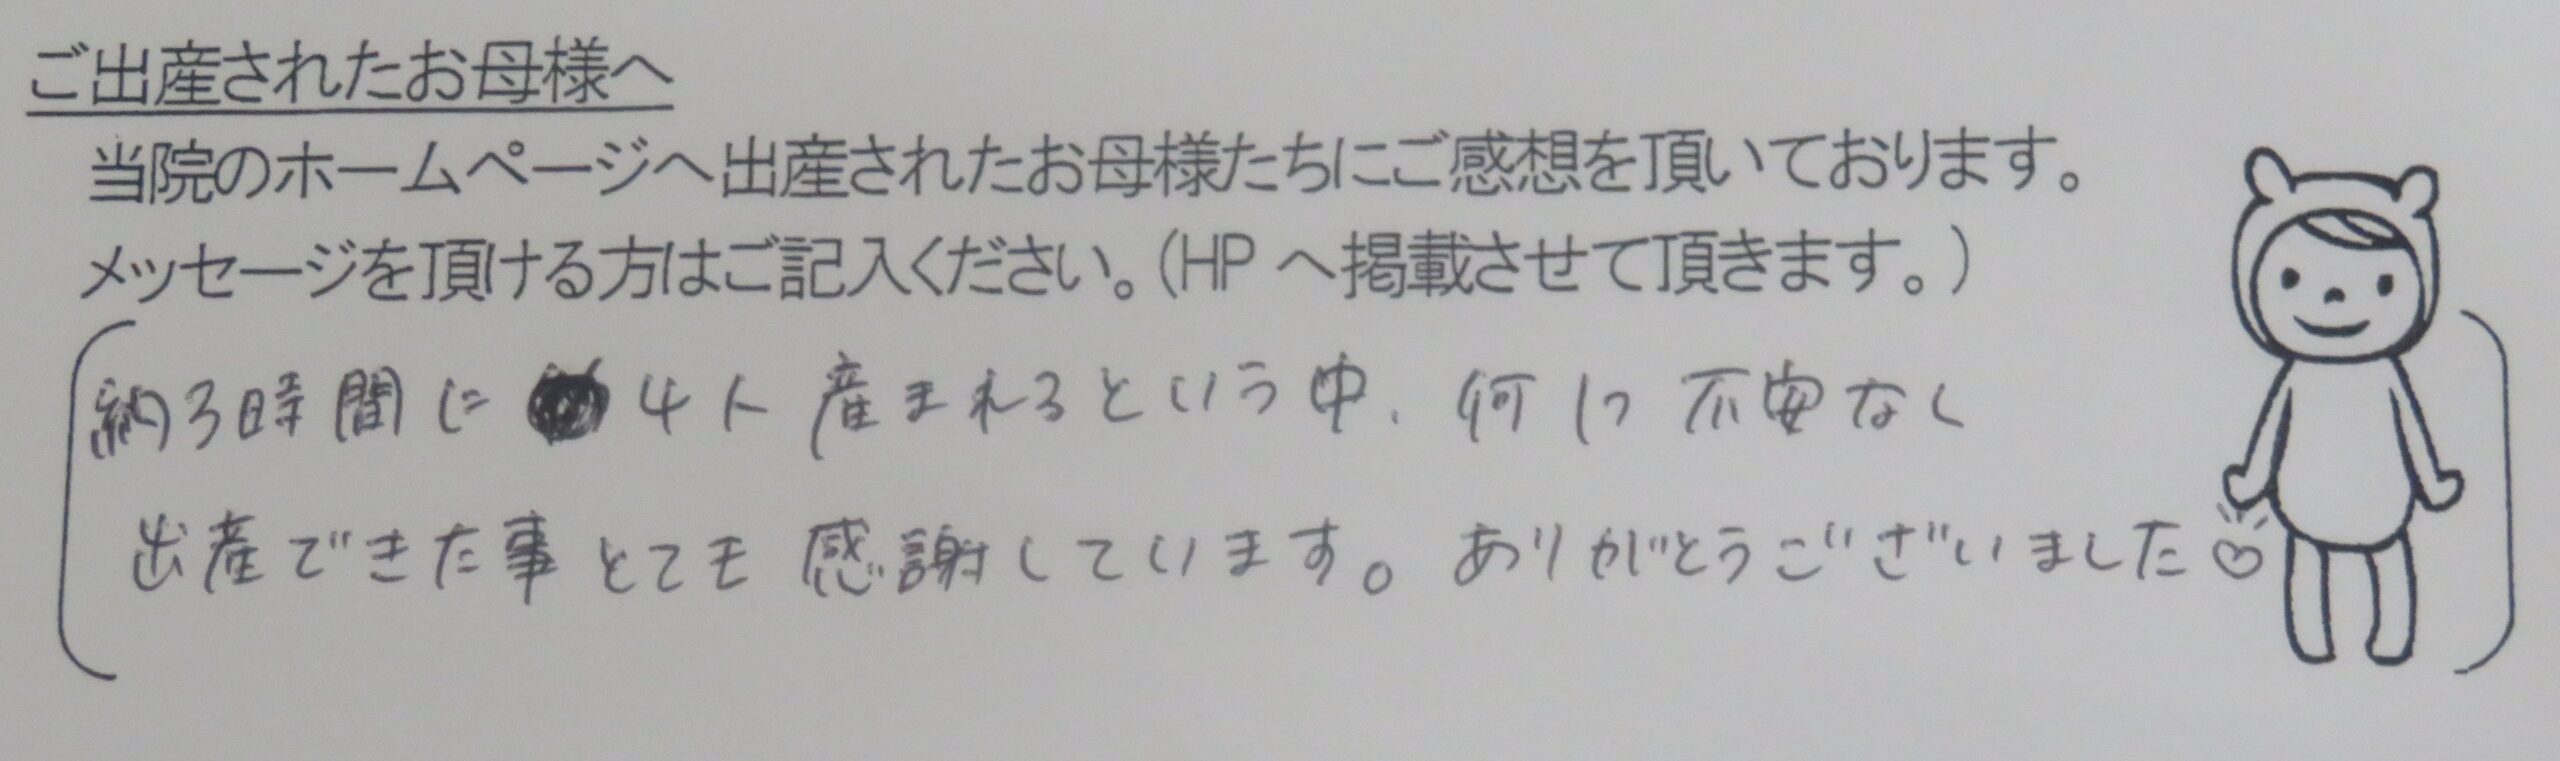 ご出産されたお母様へ
当院のホームページへ出産されたお母様たちにご感想を頂いております。
メッセージを頂ける方はご記入ください。(HPへ掲載させて頂きます。)
納3時間に 4人産まれるという中、何1つ不安なく
出産できた事とても感謝しています。ありがとうございました♡